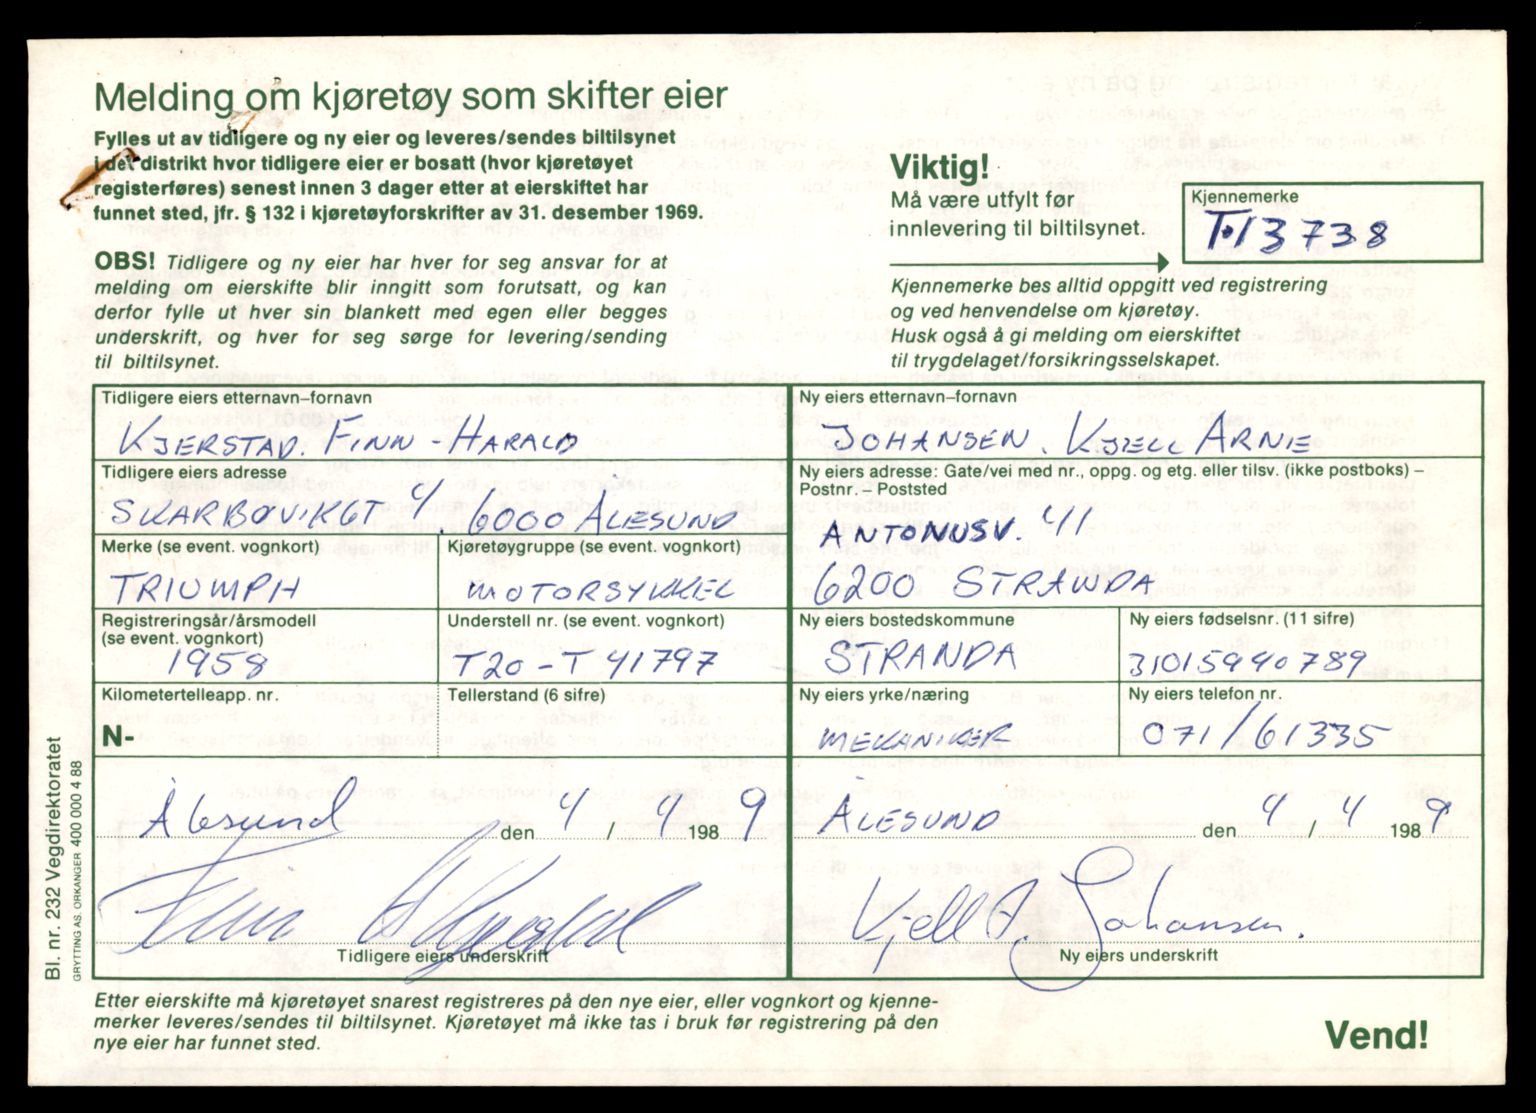 Melding om kjøretøy som skifter eier
Fylles ut av tidligere og ny eier og leveres/sendes biltilsynet
i det distrikt hvor tidligere eier er bosatt (hvor kjøretøyet
registerføres) senest innen 3 dager etter at eierskiftet har
funnet sted, jfr. § 132 i kjøretøyforskrifter av 31. desember 1969.
OBS! Tidligere og ny eier har hver for seg ansvar for at
melding om eierskifte blir inngitt som forutsatt, og kan
derfor fylle ut hver sin blankett med egen eller begges
underskrift, og hver for seg sørge for levering/sending
til biltilsynet.
Viktig!
Må være utfylt før
innlevering til biltilsynet.
Kjennemerke
T-13738
Kjennemerke bes alltid oppgitt ved registrering
og ved henvendelse om kjøretøy.
Husk også å gi melding om eierskiftet
til trygdelaget/forsikringsselskapet.
Tidligere eiers etternavn–fornavn
KJERSTAD. FINN - HARALD
Tidligere eiers adresse
SKARBØVIKGT 4, 6000 ÅLESUND
Merke (se event. vognkort)
TRIUMPH
Kjøretøygruppe (se event. vognkort)
MOTORSYKKEL
Registreringsår/årsmodell
(se event. vognkort)
1958
Understell nr. (se event. vognkort)
T20-T41797
Kilometertelleapp. nr.
N-
Tellerstand (6 sifre)
Ny eiers etternavn–fornavn
JOHANSEN. KJELL ARNE
Ny eiers adresse: Gate/vei med nr., oppg. og etg. eller tilsv. (ikke postboks) –
Postnr. – Poststed
ANTONUSV. 41
6200 STRANDA
Ny eiers bostedskommune
STRANDA
Ny eiers fødselsnr. (11 sifre)
31015940789
Ny eiers yrke/næring
MEKANIKER
Ny eiers telefon nr.
071/61335
Ålesund den 4 / 4 1989
Finn H Kjerstad
Tidligere eiers underskrift
ÅLESUND den 4 / 4 1989
Kjell A. Johansen.
Ny eiers underskrift
Etter eierskifte må kjøretøyet snarest registreres på den nye eier, eller vognkort og kjenne-
merker leveres/sendes til biltilsynet. Kjøretøyet må ikke tas i bruk før registrering på den
nye eier har funnet sted.
Vend!
Bl. nr. 232 Vegdirektoratet
GRYTTING AS. ORKANGER 400 000 4 88